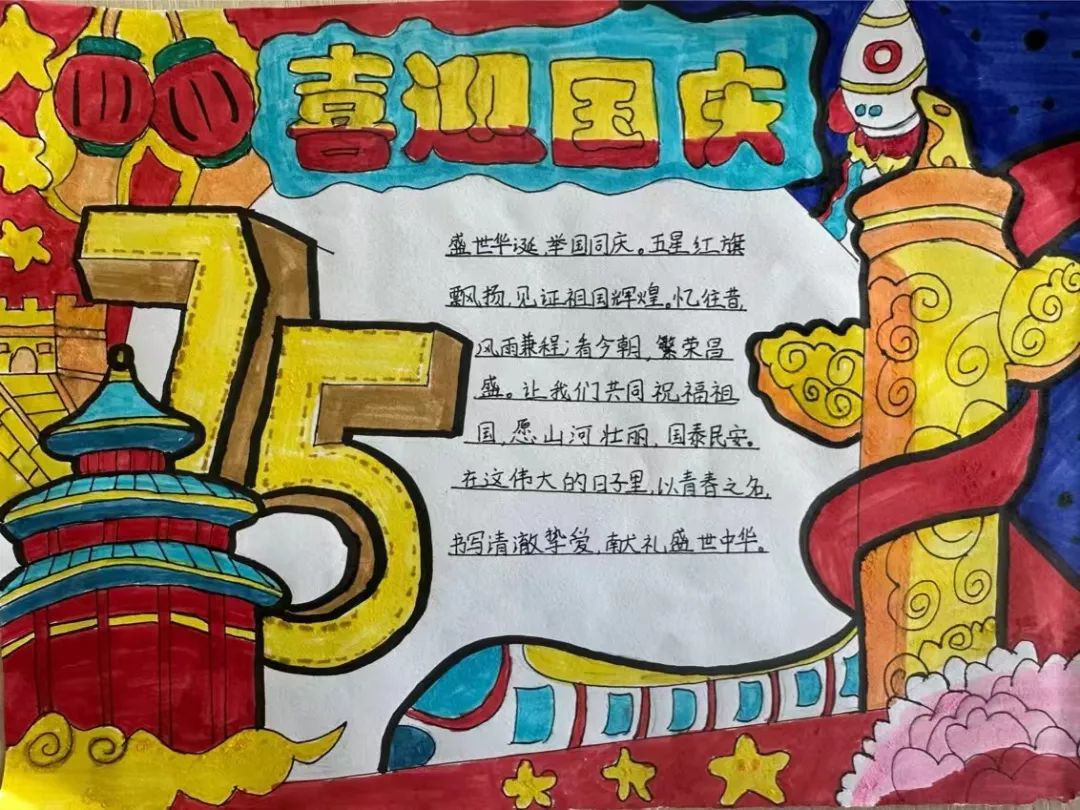 喜迎国庆
75
盛世华诞,举国同庆。五星红旗
飘扬,见证祖国辉煌。忆往昔,
风雨兼程;看今朝,繁荣昌
盛。让我们共同祝福祖
国,愿山河壮丽,国泰民安。
在这伟大的日子里,以青春之名,
书写清澈挚爱,献礼盛世中华。